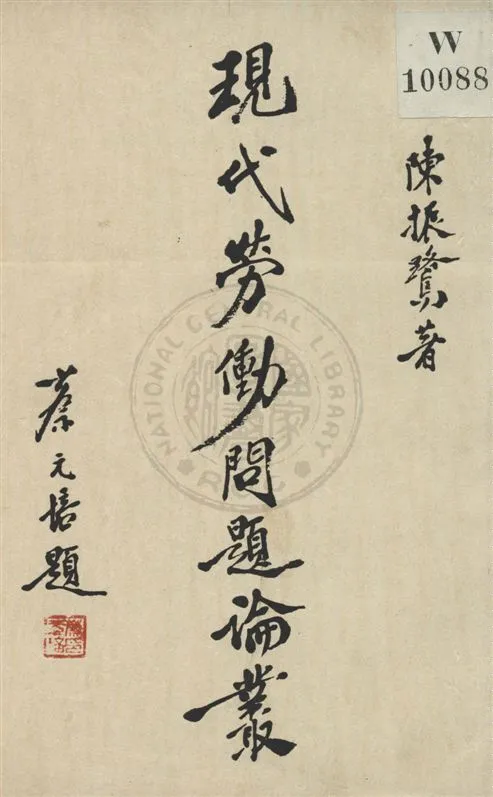 W
10088
陳振鷺著
現代勞働問題論叢
蔡元培題
NATIONAL CENTRAL LIBRARY